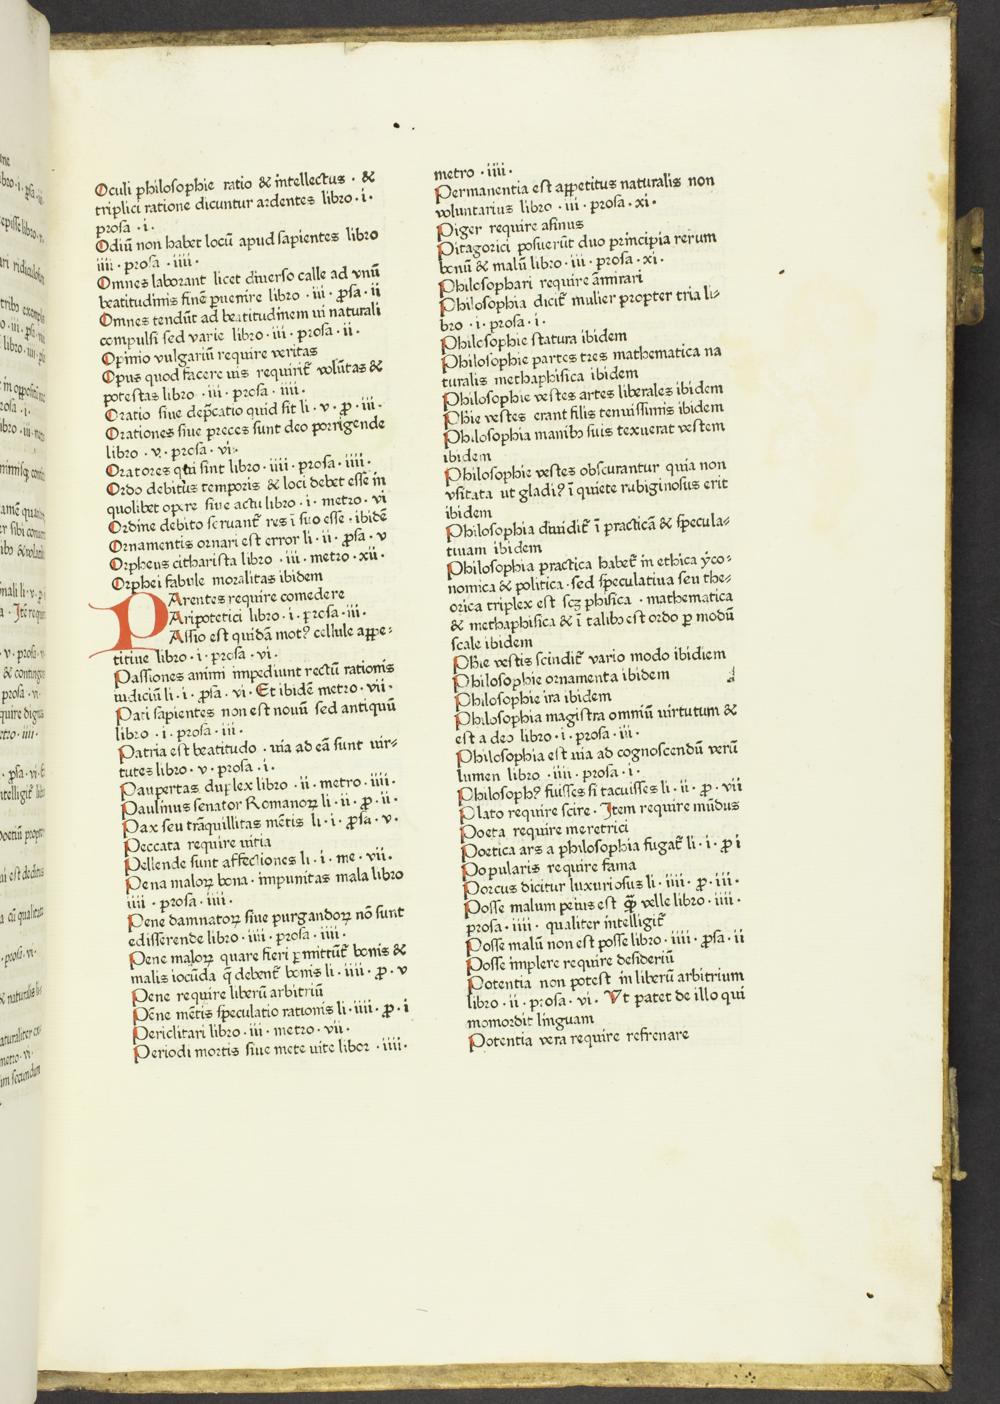 Oculi philosophie ratio & intellectus · &
triplici ratione dicuntur ardentes libro · i ·
prosa · i ·
Odiū non habet locū apud sapientes libro
iiii · prosa · iiii ·
Omnes laborant licet diuerso calle ad vnū
beatitudinis finē ꝑuenire libro · iii · ꝓsa · ii
Omnes tendūt ad beatitudinem ui naturali
compulsi sed varie libro · iii · prosa · ii ·
Opinio vulgariū require veritas
Opus quod facere uis requirit᷑ volūtas &
potestas libro · iii · prosa · iiii ·
Oratio siue dep̄catio quid sit li · v · ꝓ · iii ·
Orationes siue preces sunt deo porrigende
libro · v · prosa · vi ·
Oratores qui sint libro · iiii · prosa · iiii ·
Ordo debitus temporis & loci debet esse in
quolibet opere siue actu libro · i · metro · vi
Ordine debito seruant᷑ res ī suo esse · ibidē
Ornamentis ornari est error li · ii · ꝓsa · v
Orpheus citharista libro · iii · metro · xii ·
Orphei fabule moralitas ibidem
PArentes require comedere
PAripotetici libro · i · prosa · iii ·
PAssio est quidā motꝰ cellule appe⸗
titiue libro · i · prosa · vi ·
Passiones animi impediunt rectū rationis
iudiciū li · i · ꝓsa · vi · Et ibidē metro · vii ·
Pati sapientes non est nouū sed antiquū
libro · i · prosa · iii ·
Patria est beatitudo · uia ad eā sunt uir⸗
tutes libro · v · prosa · i ·
Paupertas duplex libro · ii · metro · iiii ·
Paulinus senator Romanoꝝ li · ii · ꝓ · ii ·
Pax seu trāquillitas mētis li · i · ꝓsa · v ·
Peccata require uitia
Pellende sunt affectiones li · i · me · vii ·
Pena maloꝝ bona · impunitas mala libro
iiii · prosa · iiii ·
Pene damnatoꝝ siue purgandoꝝ nō sunt
edisserende libro · iiii · prosa · iiii ·
Pene maloꝝ quare fieri ꝑmittūt᷑ bonis &
malis iocūda q̄ debent᷑ bonis li · iiii · ꝓ · v
Pene require liberū arbitriū
Pēne mētis speculatio rationis li · iiii · ꝓ · i
Periclitari libro · iii · metro · vii ·
Periodi mortis siue mete uite libor · iiii ·
metro · iiii ·
Permanentia est appetitus naturalis non
voluntarius libro · iii · prosa · xi ·
Piger require asinus
Pitagorici posuerūt duo principia rerum
bonū & malū libro · iii · prosa · xi ·
Philosophari require āmirari
Philosophia dicit᷑ mulier propter tria li⸗
bro · i · prosa · i ·
Philosophie statura ibidem
Philosophie partes tres mathematica na
turalis methaphisica ibidem
Philosophie vestes artes liberales ibidem
Phie vestes erant filis tenuissimis ibidem
Philosophia manibꝰ suis texuerat vestem
ibidem
Philosophie vestes obscurantur quia non
vsitata ut gladiꝰ ī quiete rubiginosus erit
ibidem
Philosophia diuidit᷑ ī practicā & specula⸗
tiuam ibidem
Philosophia practica habet᷑ in ethica yco⸗
nomica & politica · sed speculatiua seu the⸗
orica triplex est scꝫ phisica · mathematica
& methaphisica & ī talibꝰ est ordo ꝑ modū
scale ibidem
Phie vestis scindit᷑ vario modo ibidiem
Philosophie ornamenta ibidem
Philosophie ira ibidem
Philosophia magistra omniū uirtutum &
est a deo libro · i · prosa · iii ·
Philosophia est uia ad cognoscendū verū
lumen libro · iiii · prosa · i ·
Philosophꝰ fuisses si tacuisses li · ii · ꝓ · vii
Plato require scire · Item require mūdus
Poeta require meretrici
Poetica ars a philosophia fugat᷑ li · i · ꝓ i
Popularis require fama
Porcus dicitur luxuriosus li · iiii · ꝓ · iii ·
Posse malum peius est ꝙ̄ velle libro · iiii ·
prosa · iiii · qualiter intelligit᷑
Posse malū non est posse libro · iiii · ꝓsa · ii
Posse implere require desideriū
Potentia non potest in liberū arbitrium
libro · ii · prosa · vi · Vt patet de illo qui
momordit linguam
Potentia vera require refrenare